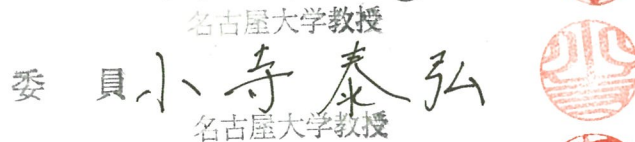 名古屋大学教授
委 員 小寺泰弘
名古屋大学教授